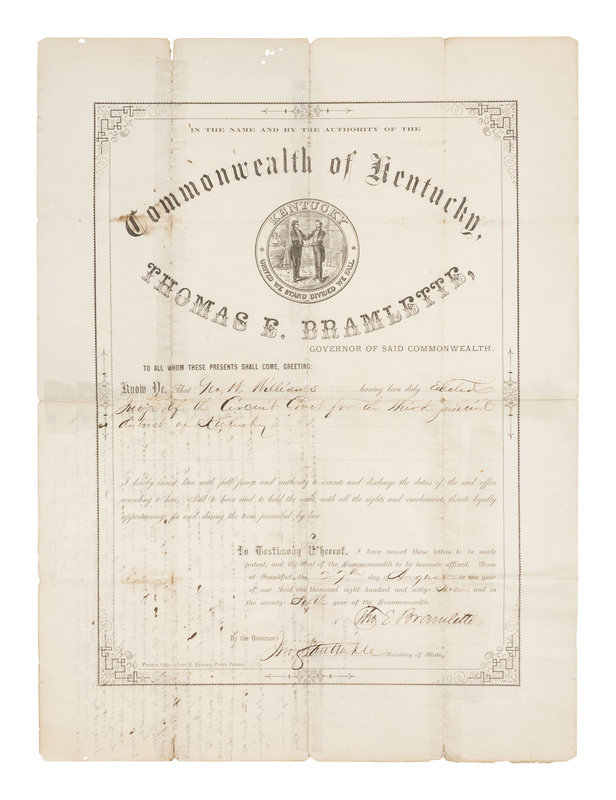 IN THE NAME AND BY THE AUTHORITY OF THE
Commonwealth of Kentucky,
KENTUCKY
UNITED WE STAND DIVIDED WE FALL
THOMAS E. BRAMLETTE,
GOVERNOR OF SAID COMMONWEALTH.
TO ALL WHOM THESE PRESENTS SHALL COME, GREETING:
Know Ye, That Geo. W. Williams having been duly elected
Judge of the Circuit Court for the third judicial
district of Kentucky
I hereby invest him with full power and authority to execute and discharge the duties of the said office
according to law. And to have and to hold the same, with all the rights and emoluments thereto legally
appertaining, for and during the term prescribed by law.
In Testimony Whereof, I have caused these letters to be made
patent, and the seal of the Commonwealth to be hereunto affixed. Done
at Frankfort, the 27th day August in the year
of our Lord one thousand eight hundred and sixty- and in
the seventy- year of the Commonwealth.
Tho E Bramlette
By the Governor:
Secretary of State.